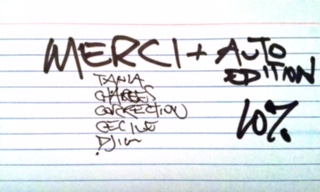 MERCI + AUTO
EDITION
TANIA
CHARLES
CORRECTION
CECILE
10%